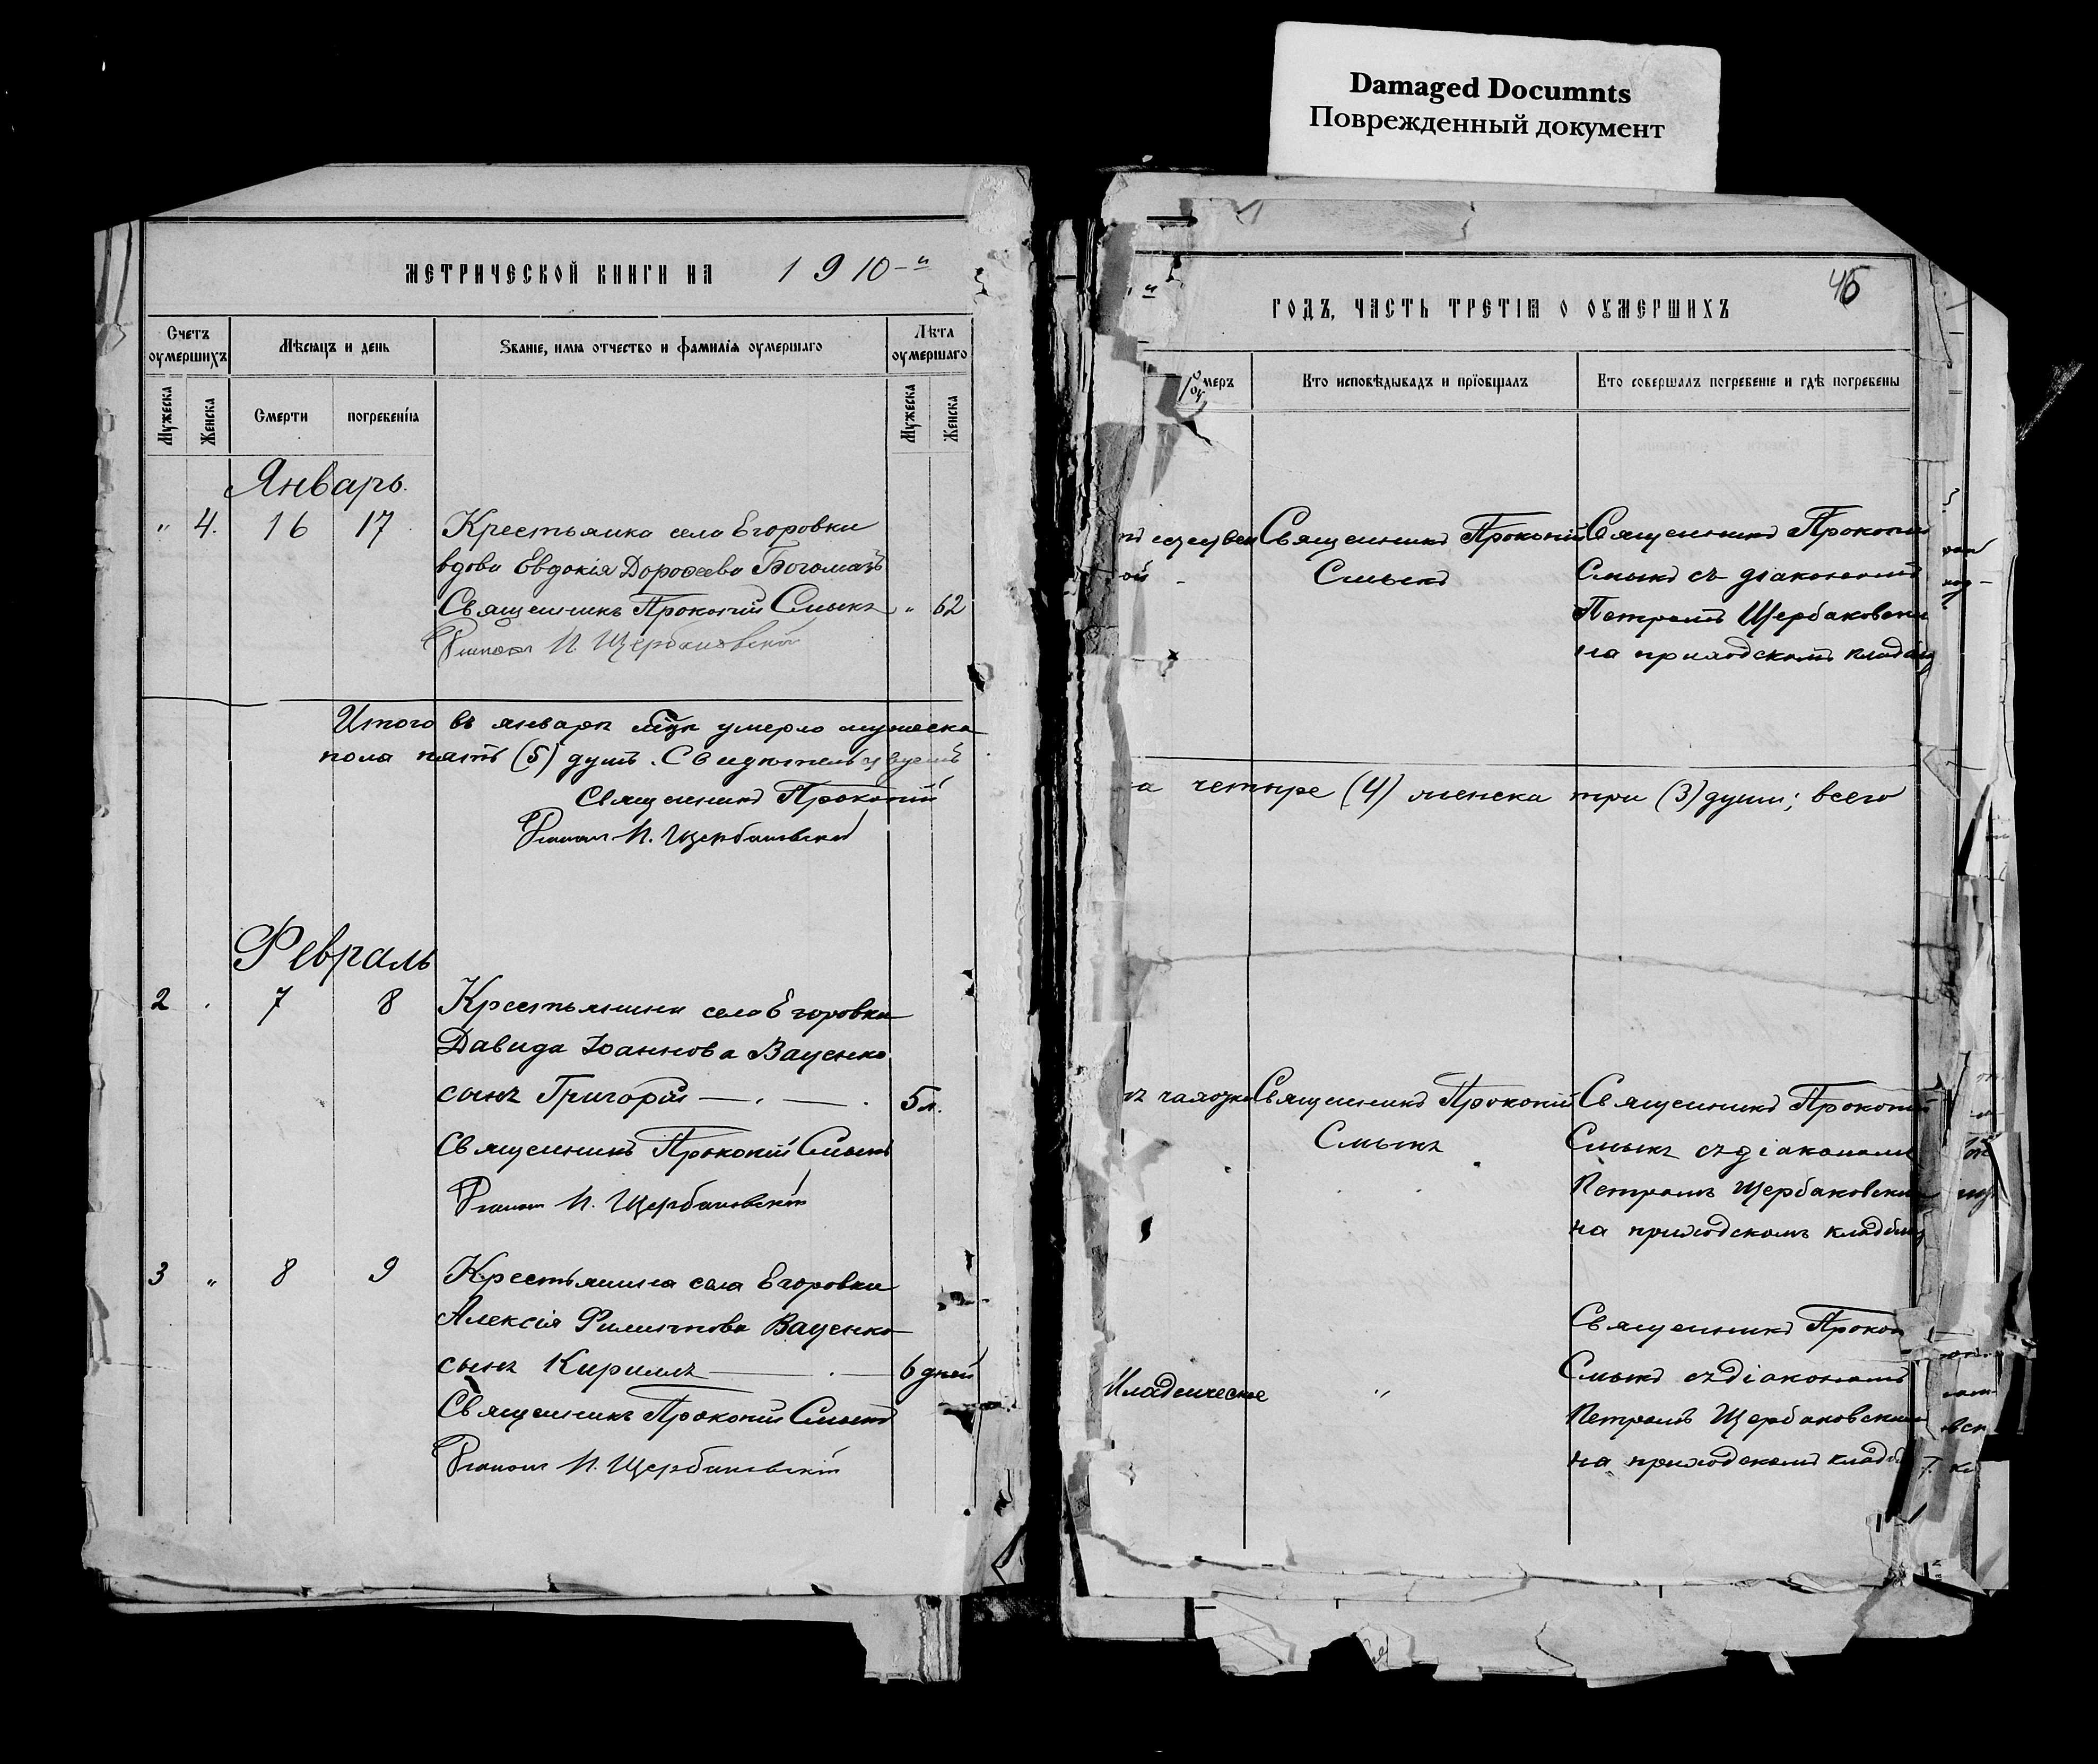 Damaged Documnts
Поврежденный документ
МЕТРИЧЕСКОЙ КНИГИ НА 1910-й
Счетъ оумершихъ
Мѣсяцъ и день
Званіе, имя отчество и фамилія оумершаго
Лѣта оумершаго
Мужеска
Женска
Смерти
погребенія
Мужеска
Женска
Январь.
" 4. 16 17 Крестьянка села Егоровки
вдова Евдокія Дороѳеева Богомазъ
Священникъ Прокопій Смыкъ " 62
П. Щербановскій
Итого въ январѣ мцѣ умерло мужеска
пола пять (5) душъ. Свидѣтельствуемъ
Священникъ Прокопій
П. Щербановскій
Февраль
2 . 7 8 Крестьянина села Егоровки
Давида Іоаннова Ваценко
сынъ Григорій — . — . 5 л.
Священникъ Прокопій Смыкъ
П. Щербановскій
3 " 8 9 Крестьянина села Егоровки
Алексія Филиппова Ваценко
сынъ Кириллъ — . — 6 дней
Священникъ Прокопій Смыкъ
П. Щербановскій
ГОДЪ, ЧАСТЬ ТРЕТІЯ О ОУМЕРШИХЪ
45
меръ
Кто исповѣдывалъ и пріобщалъ
Кто совершалъ погребеніе и гдѣ погребены
Священникъ Прокопій
Смыкъ
Священникъ Прокопій
Смыкъ съ діакономъ
Петромъ Щербаковски
на приходскомъ кладбищ
а четыре (4) женска три (3) души; всего
Священникъ Прокопій
Смыкъ
Священникъ Прокопій
Смыкъ съ діакономъ
Петромъ Щербаковски
на приходскомъ кладбищ
Младенческое "
Священникъ Прокоп
Смыкъ съ діакономъ
Петромъ Щербаковским
на приходскомъ кладб